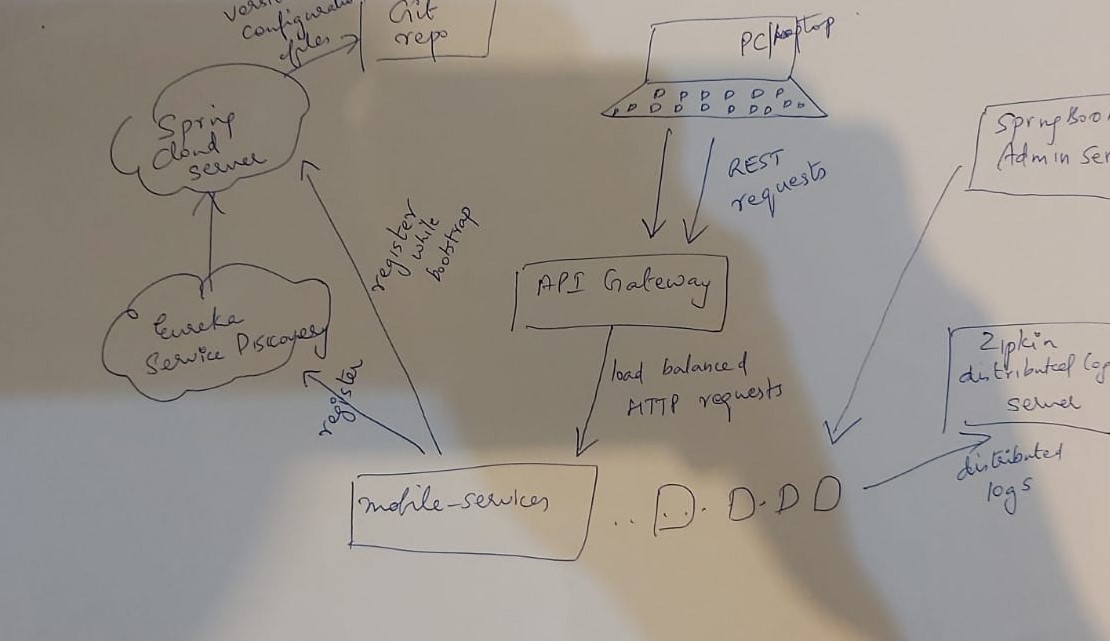 configuration
files
Git
repo
PC/Laptop
Spring
Cloud
server
REST
requests
Spring Boo
Admin Ser
register
while
bootstrap
API Gateway
Eureka
Service Discovery
register
load balanced
HTTP requests
Zipkin
distributed log
server
distributed
logs
mobile-services